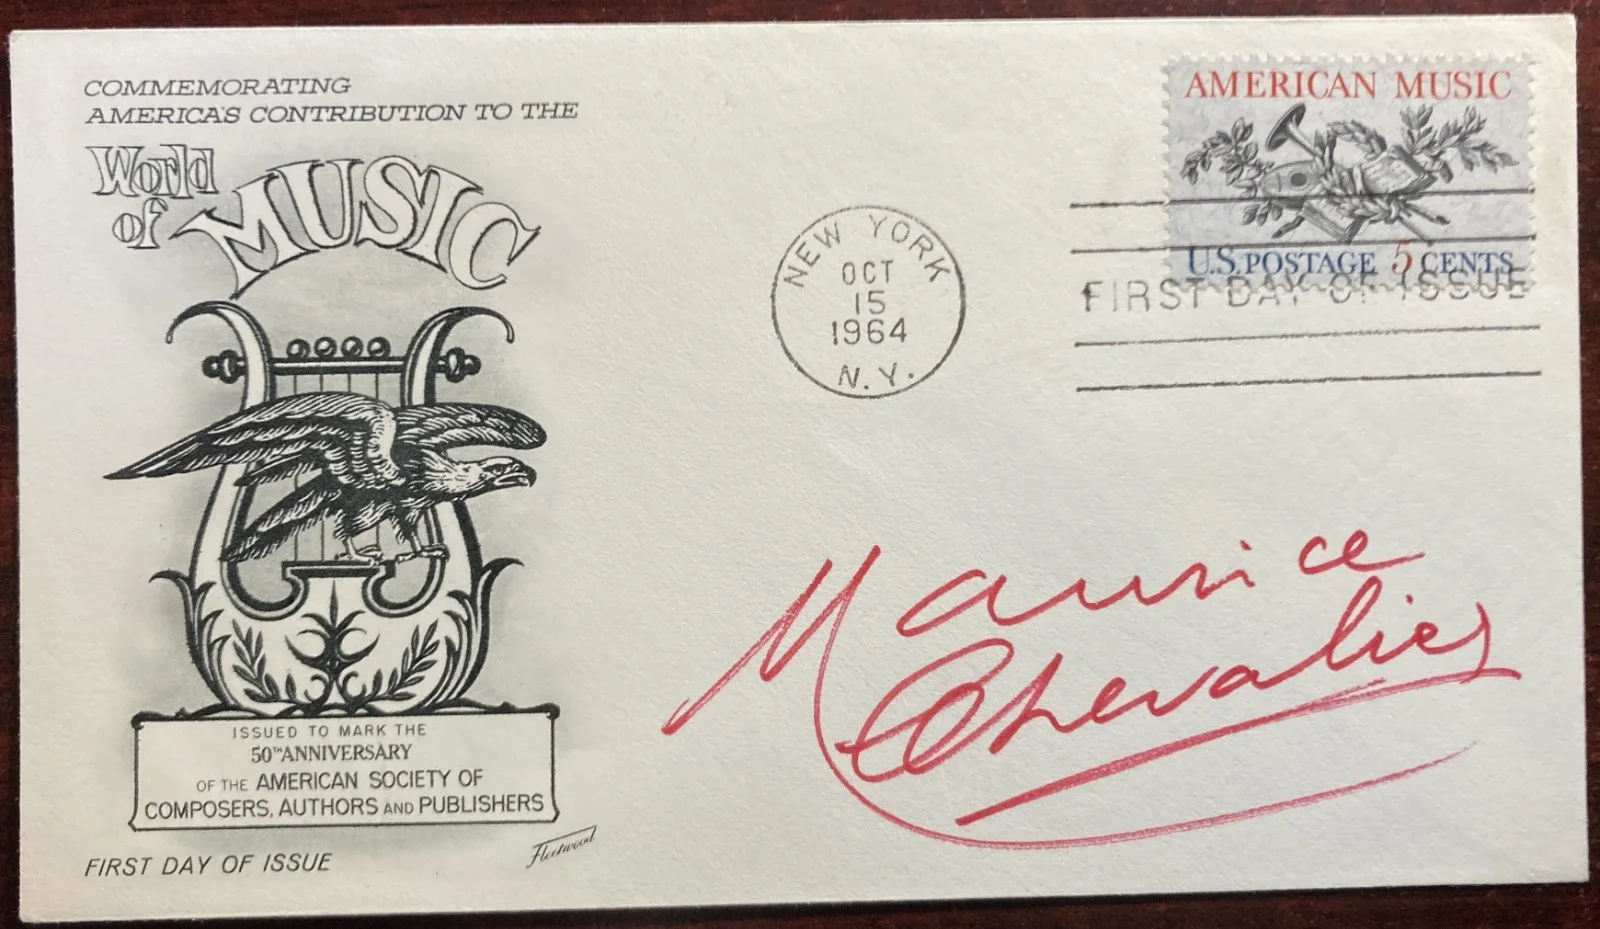 COMMEMORATING
AMERICA'S CONTRIBUTION TO THE
World
of MUSIC
ISSUED TO MARK THE
50TH ANNIVERSARY
OF THE AMERICAN SOCIETY OF
COMPOSERS, AUTHORS AND PUBLISHERS
FIRST DAY OF ISSUE
Fleetwood
NEW YORK
OCT
15
1964
N.Y.
AMERICAN MUSIC
U.S. POSTAGE 5 CENTS
FIRST DAY OF ISSUE
Maurice
Chevalier